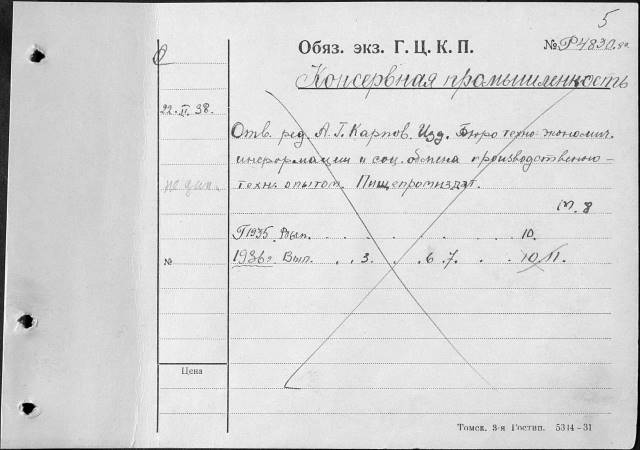 5
Обяз. экз. Г. Ц. К. П. № Р4830
Консервная промышленность
22. II. 38.
Отв. ред. А. Г. Карпов. Изд. Бюро техно-экономич.
информации и соц. обмена производственно-
техн. опытом. Пищепромиздат.
м. 8
Г 1935. Вып. . . . . . . . . 10.
№ 1936 г. Вып. . . 3. . . 6. 7. . . 10 11.
Цена
Томск. 3-я Гостип. 5314-31